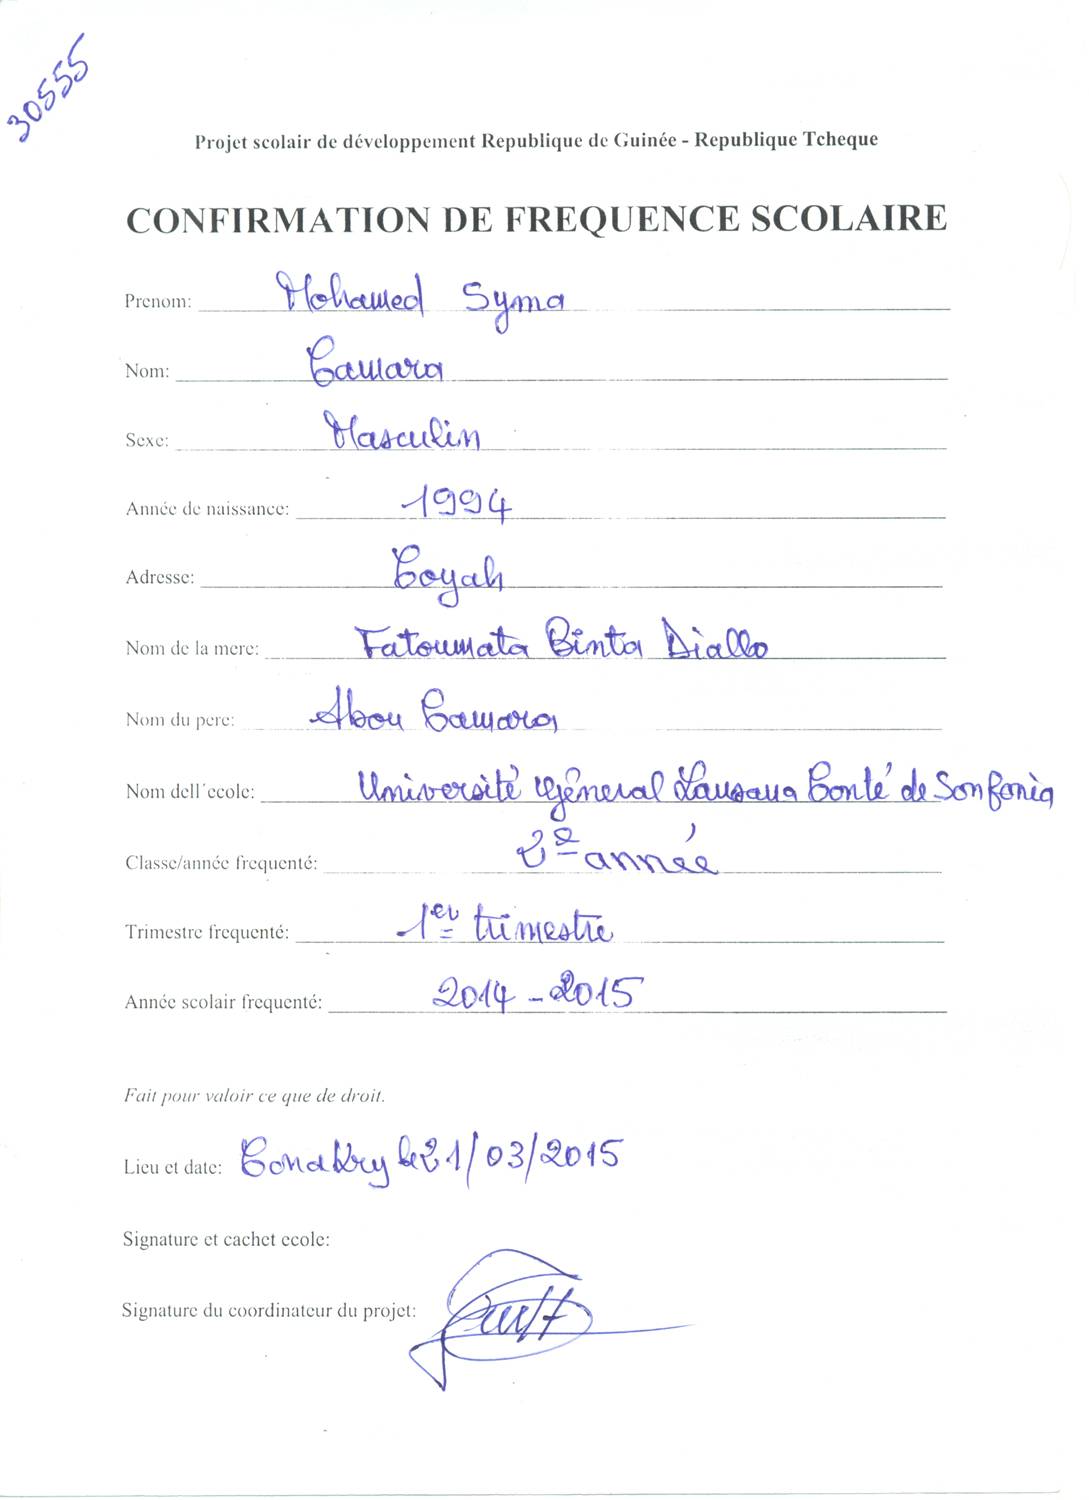 30555
Projet scolair de développement Republique de Guinée - Republique Tcheque
CONFIRMATION DE FREQUENCE SCOLAIRE
Prenom: Mohamed Syma
Nom: Camara
Sexe: Masculin
Année de naissance: 1994
Adresse: Coyah
Nom de la mere: Fatoumata Binta Diallo
Nom du pere: Abou Camara
Nom dell´ecole: Université Général Lansana Conté de Sonfonia
Classe/année frequenté: 2e année
Trimestre frequenté: 1er trimestre
Année scolair frequenté: 2014 - 2015
Fait pour valoir ce que de droit.
Lieu et date: Conakry le 21/03/2015
Signature et cachet ecole:
Signature du coordinateur du projet: